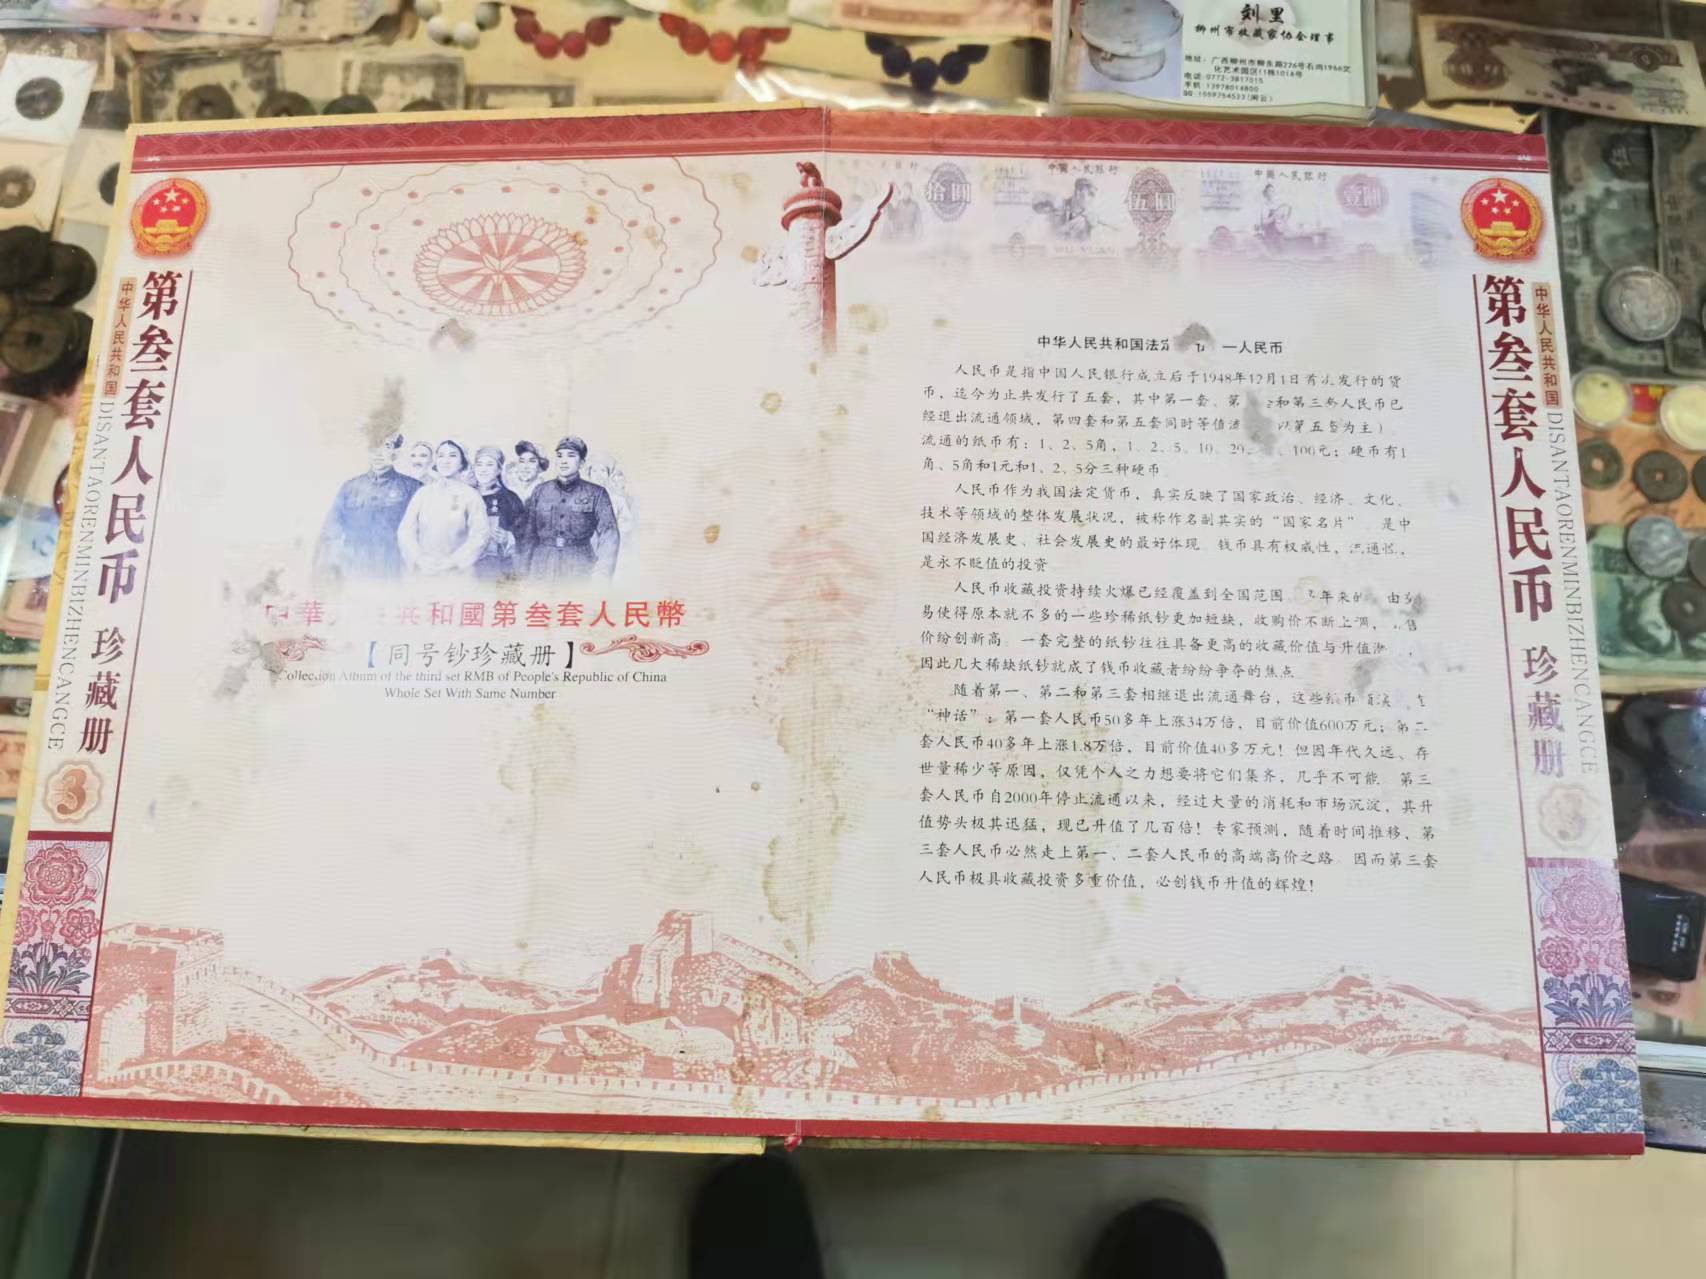 刘里
柳州市收藏家协会理事
地址：广西柳州市柳东路226号石尚1966文
化艺术园区11栋101A号
电话:0772-3817015
手机:13978014800
中国人民银行
拾圆
中国人民银行
伍圆
WU YUAN
中国人民银行
壹圆
中华人民共和国
第叁套人民币 珍藏册
DISANTAORENMINBIZHENCANGCE
3
共和國第叁套人民幣
【同号钞珍藏册】
Collection Album of the third set RMB of People's Republic of China
Whole Set With Same Number
中华人民共和国法定 币 —人民币
人民币是指中国人民银行成立后于1948年12月1日首次发行的货
币，迄今为止共发行了五套，其中第一套、第 和第三套人民币已
经退出流通领域，第四套和第五套同时等值流 以第五套为主）
流通的纸币有：1、2、5角，1、2、5、10、20、 、100元；硬币有1
角、5角和1元和1、2、5分三种硬币
人民币作为我国法定货币，真实反映了国家政治、经济、文化、
技术等领域的整体发展状况，被称作名副其实的“国家名片” 是中
国经济发展史、社会发展史的最好体现 钱币具有权威性，流通性，
是永不贬值的投资
人民币收藏投资持续火爆已经覆盖到全国范围 年来的 由
易使得原本就不多的一些珍稀纸钞更加短缺，收购价不断上调， 售
价纷创新高 一套完整的纸钞往往具备更高的收藏价值与升值
因此几大稀缺纸钞就成了钱币收藏者纷纷争夺的焦点
随着第一、第二和第三套相继退出流通舞台，这些纸币
“神话”：第一套人民币50多年上涨34万倍，目前价值600万元；第二
套人民币40多年上涨1.8万倍，目前价值40多万元！但因年代久远、存
世量稀少等原因，仅凭个人之力想要将它们集齐，几乎不可能 第三
套人民币自2000年停止流通以来，经过大量的消耗和市场沉淀，其升
值势头极其迅猛，现已升值了几百倍！专家预测，随着时间推移，第
三套人民币必然走上第一、二套人民币的高端高价之路 因而第三套
人民币极具收藏投资多重价值，必创钱币升值的辉煌！
中华人民共和国
第叁套人民币 珍藏册
DISANTAORENMINBIZHENCANGCE
3